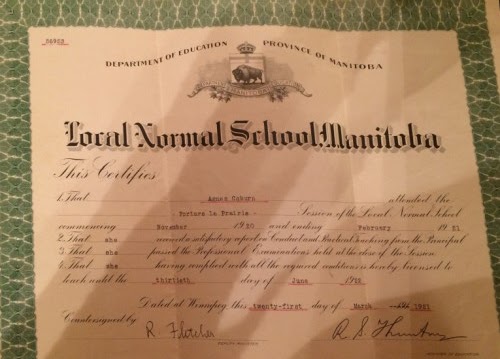 DEPARTMENT OF EDUCATION PROVINCE OF MANITOBA
Local Normal School, Manitoba
This Certifies
1. That Agnes Coburn attended the
Portage la Prairie Session of the Local Normal School
commencing November 1920 and ending February 1921
2. That she received a satisfactory report on Conduct and Practical Teaching from the Principal
3. That she passed the Professional Examinations held at the close of the Session
4. That she having complied with all the required conditions is hereby licensed to
teach until the thirtieth day of June
Dated at Winnipeg this twenty-first day of March 1921
Countersigned by R Fletcher R S Thornton